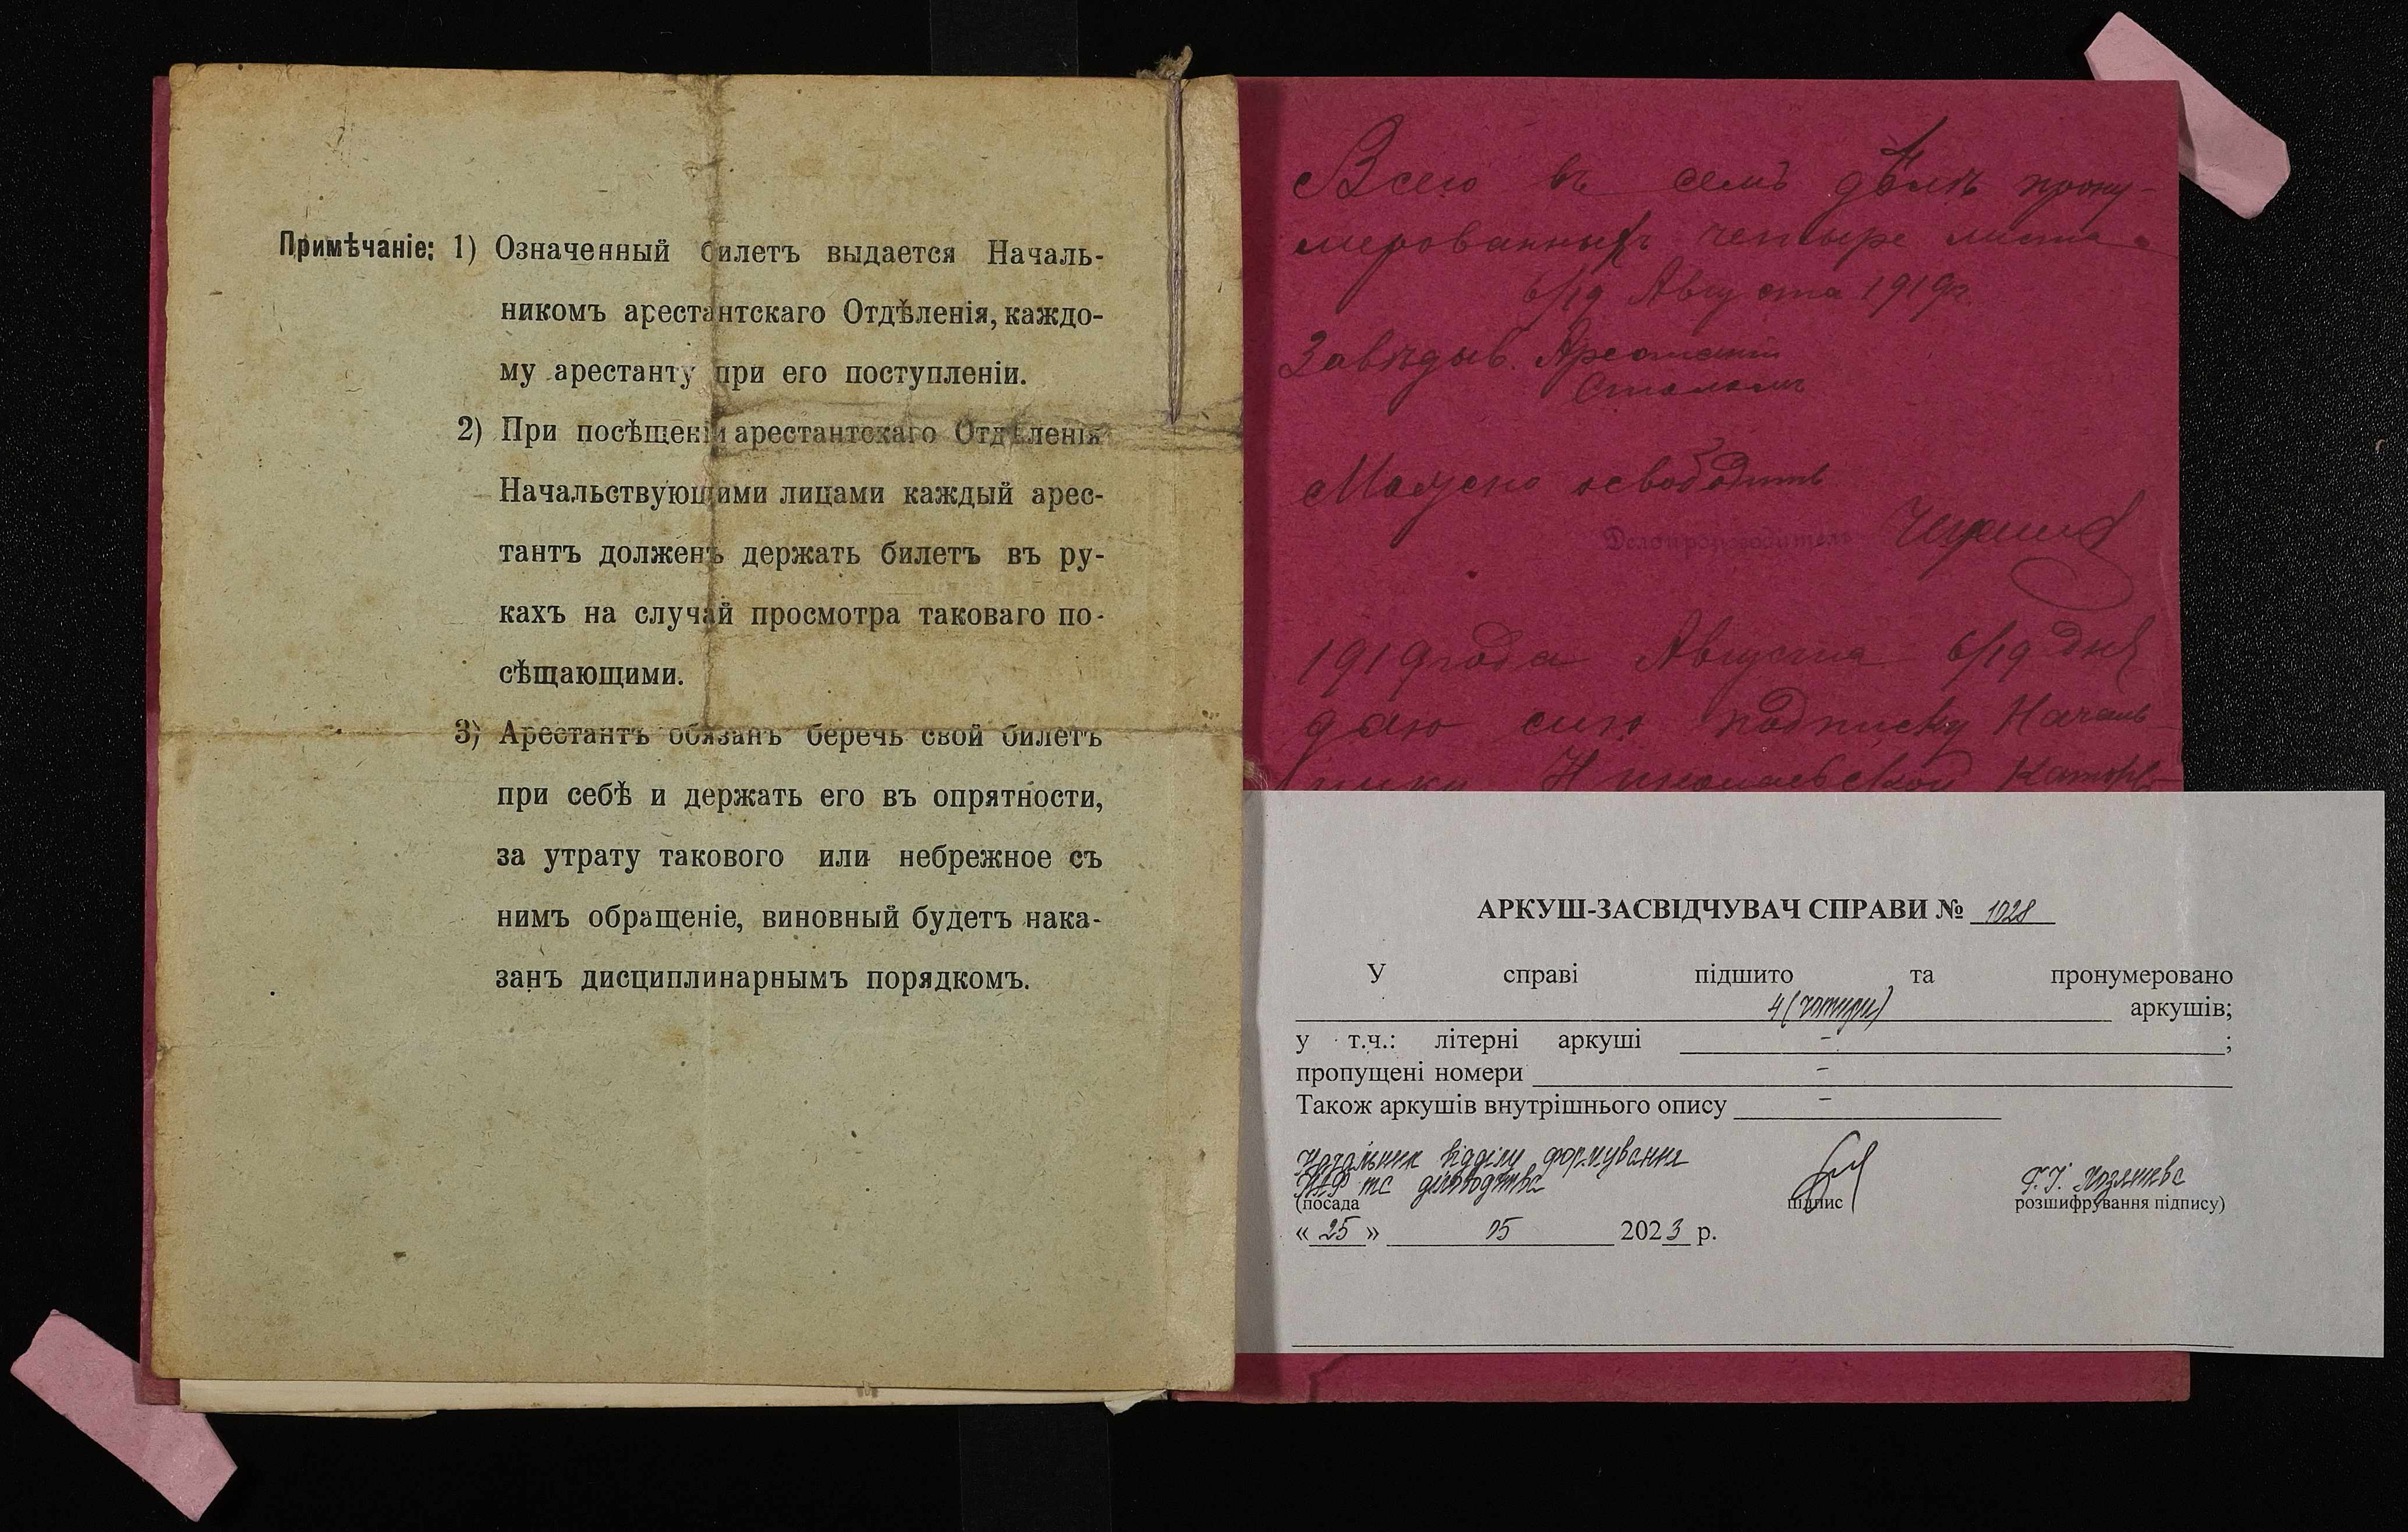 Примѣчаніе: 1) Означенный билетъ выдается Началь-
никомъ арестантскаго Отдѣленія, каждо-
му арестанту при его поступленіи.
2) При посѣщеніи арестантскаго Отдѣленія
Начальствующими лицами каждый арес-
тантъ долженъ держать билетъ въ ру-
кахъ на случай просмотра таковаго по-
сѣщающими.
3) Арестантъ обязанъ беречь свой билетъ
при себѣ и держать его въ опрятности,
за утрату такового или небрежное съ
нимъ обращеніе, виновный будетъ нака-
занъ дисциплинарнымъ порядкомъ.
Всего въ семъ дѣлѣ прону-
мерованныхъ четыре листа
6/19 Августа 1919г.
Завѣдыв. Арестантс
Столомъ
Можно освободить
Делопроизводитель
1919 года Августа 6/19 дня
даю сию подписку Началь-
нику Николаевской Каторж-
АРКУШ-ЗАСВІДЧУВАЧ СПРАВИ № 1028
У справі підшито та пронумеровано
4 (чотири) аркушів;
у т.ч.: літерні аркуші - ;
пропущені номери -
Також аркушів внутрішнього опису -
Начальник відділу формування
НАФ та діловодства
(посада підпис розшифрування підпису)
« 25 » 05 2023 р.